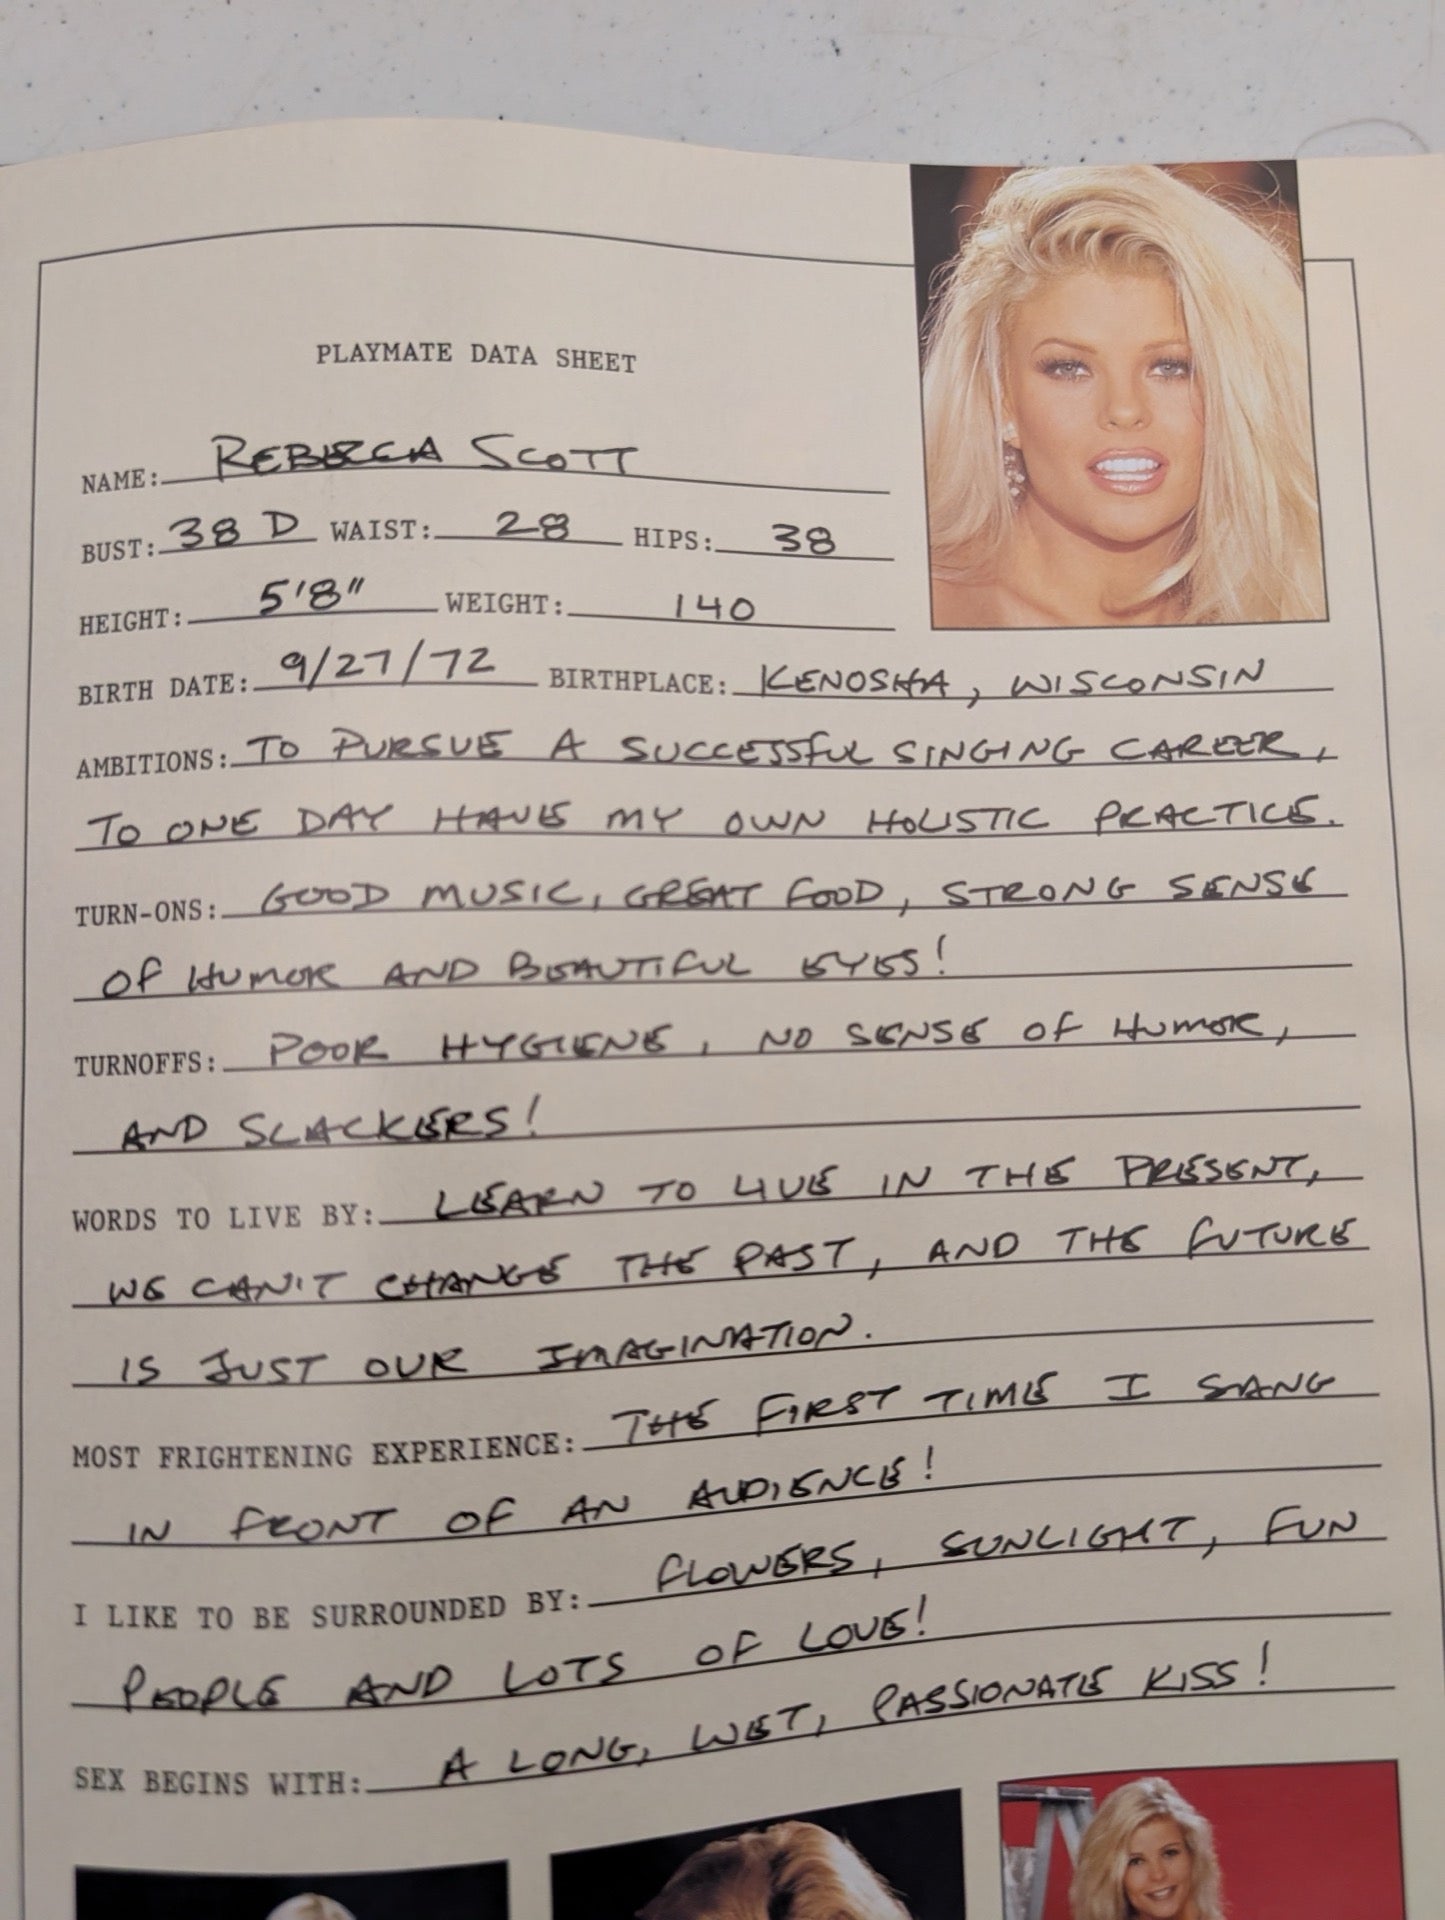 PLAYMATE DATA SHEET
NAME: REBECCA SCOTT
BUST: 38 D WAIST: 28 HIPS: 38
HEIGHT: 5'8" WEIGHT: 140
BIRTH DATE: 9/27/72 BIRTHPLACE: KENOSHA, WISCONSIN
AMBITIONS: TO PURSUE A SUCCESSFUL SINGING CAREER,
TO ONE DAY HAVE MY OWN HOLISTIC PRACTICE.
TURN-ONS: GOOD MUSIC, GREAT FOOD, STRONG SENSE
OF HUMOR AND BEAUTIFUL EYES!
TURNOFFS: POOR HYGIENE, NO SENSE OF HUMOR,
AND SLACKERS!
WORDS TO LIVE BY: LEARN TO LIVE IN THE PRESENT,
WE CAN'T CHANGE THE PAST, AND THE FUTURE
IS JUST OUR IMAGINATION.
MOST FRIGHTENING EXPERIENCE: THE FIRST TIME I SANG
IN FRONT OF AN AUDIENCE!
I LIKE TO BE SURROUNDED BY: FLOWERS, SUNLIGHT, FUN
PEOPLE AND LOTS OF LOVE!
SEX BEGINS WITH: A LONG, WET, PASSIONATE KISS!